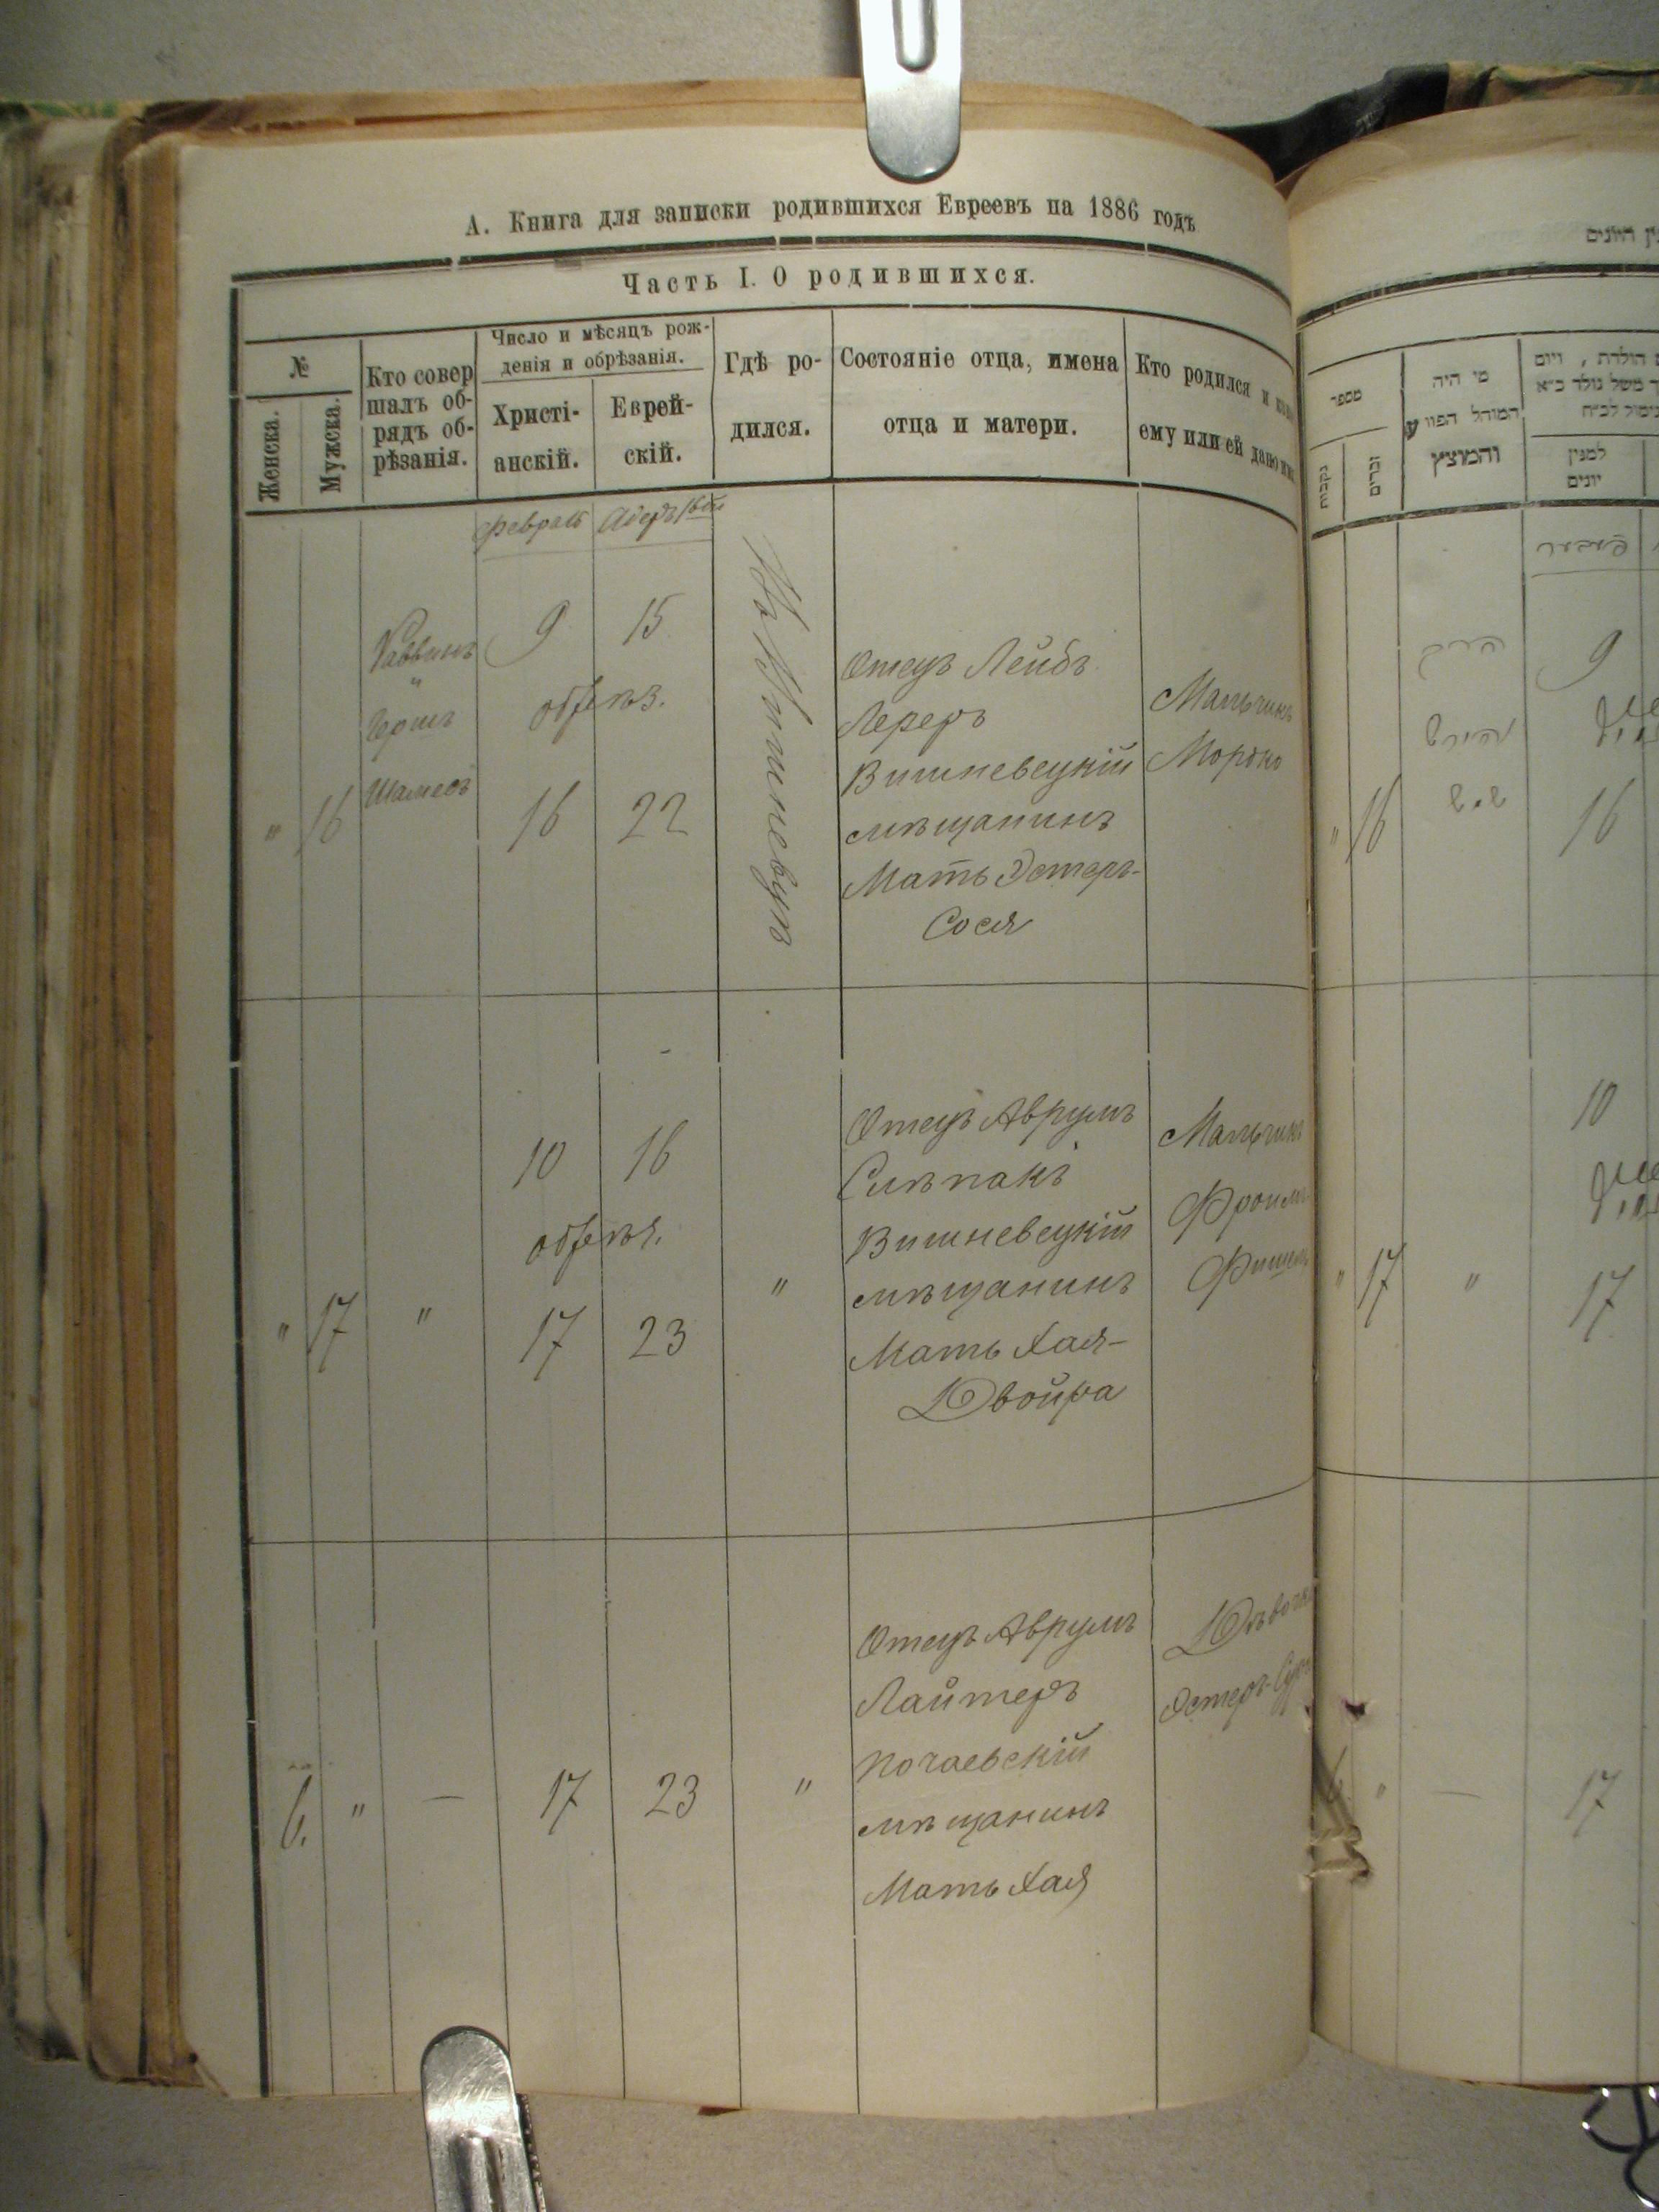 А. Книга для записки родившихся Евреевъ на 1886 годъ
Часть I. О родившихся.
№
Женска.
Мужска.
Кто совер
шалъ об-
рядъ об-
рѣзанія.
Число и мѣсяцъ рож-
денія и обрѣзанія.
Христі-
анскій.
Еврей-
скій.
Гдѣ ро-
дился.
Состояніе отца, имена
отца и матери.
Кто родился и
ему или ей дано
Февраль
Адеръ
" 16
Раввинъ
"
Гершъ
Шамесъ
9 15
обрѣз.
16 22
Въ Вишневцѣ
Отецъ Лейбъ
Лереръ
Вишневецкій
мѣщанинъ
Мать Эстеръ-
Сося
Мальчикъ
Мордко
" 17
"
10 16
обрѣз.
17 23
"
Отецъ Аврумъ
Слѣпакъ
Вишневецкій
мѣщанинъ
Мать Хая-
Двойра
Мальчикъ
Фроимъ
Фишель
6. "
—
17 23
"
Отецъ Аврумъ
Лайтеръ
Почаевскій
мѣщанинъ
Мать Хая
Дѣвочка
Эстеръ-
מספר
נקבות
זכרים
מי היה
המוהל הפורע
והמוצץ
הולדת , ויום
למנין
יונים
9
" 16
הירש
שמש
16
10
" 17
"
17
"
—
17